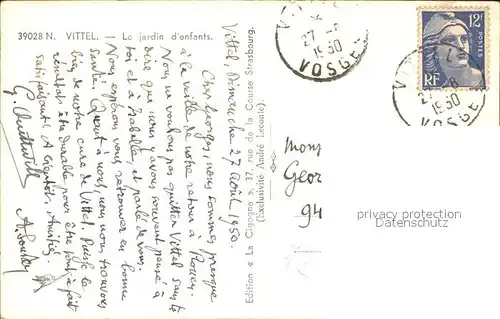 39028 N. VITTEL. _ Le jardin d'enfants.
Vittel, Dimanche 27 août 1950.
Cher Georges, nous sommes presque
à la veille de notre retour à Rouen.
Nous ne voulons pas quitter Vittel sans te
dire que nous avons souvent pensé à
toi et à Isabelle, et parlé de vous.
Nous espérons vous retrouver en bonne
santé. Quant à nous, nous nous trouvons
bien de notre cure de Vittel. Puisse le
résultat être durable pour être tout à fait
satisfaisant ! A bientôt, Amitiés.
G.
Edition « La Cigogne », 27, rue de la Course Strasbourg.
(Exclusivité André Leconte)
27 -8
1950
VOSGES
12F
POSTES
RF
1950
VOSGES
Mons
Geor
94
privacy protection
Datenschutz